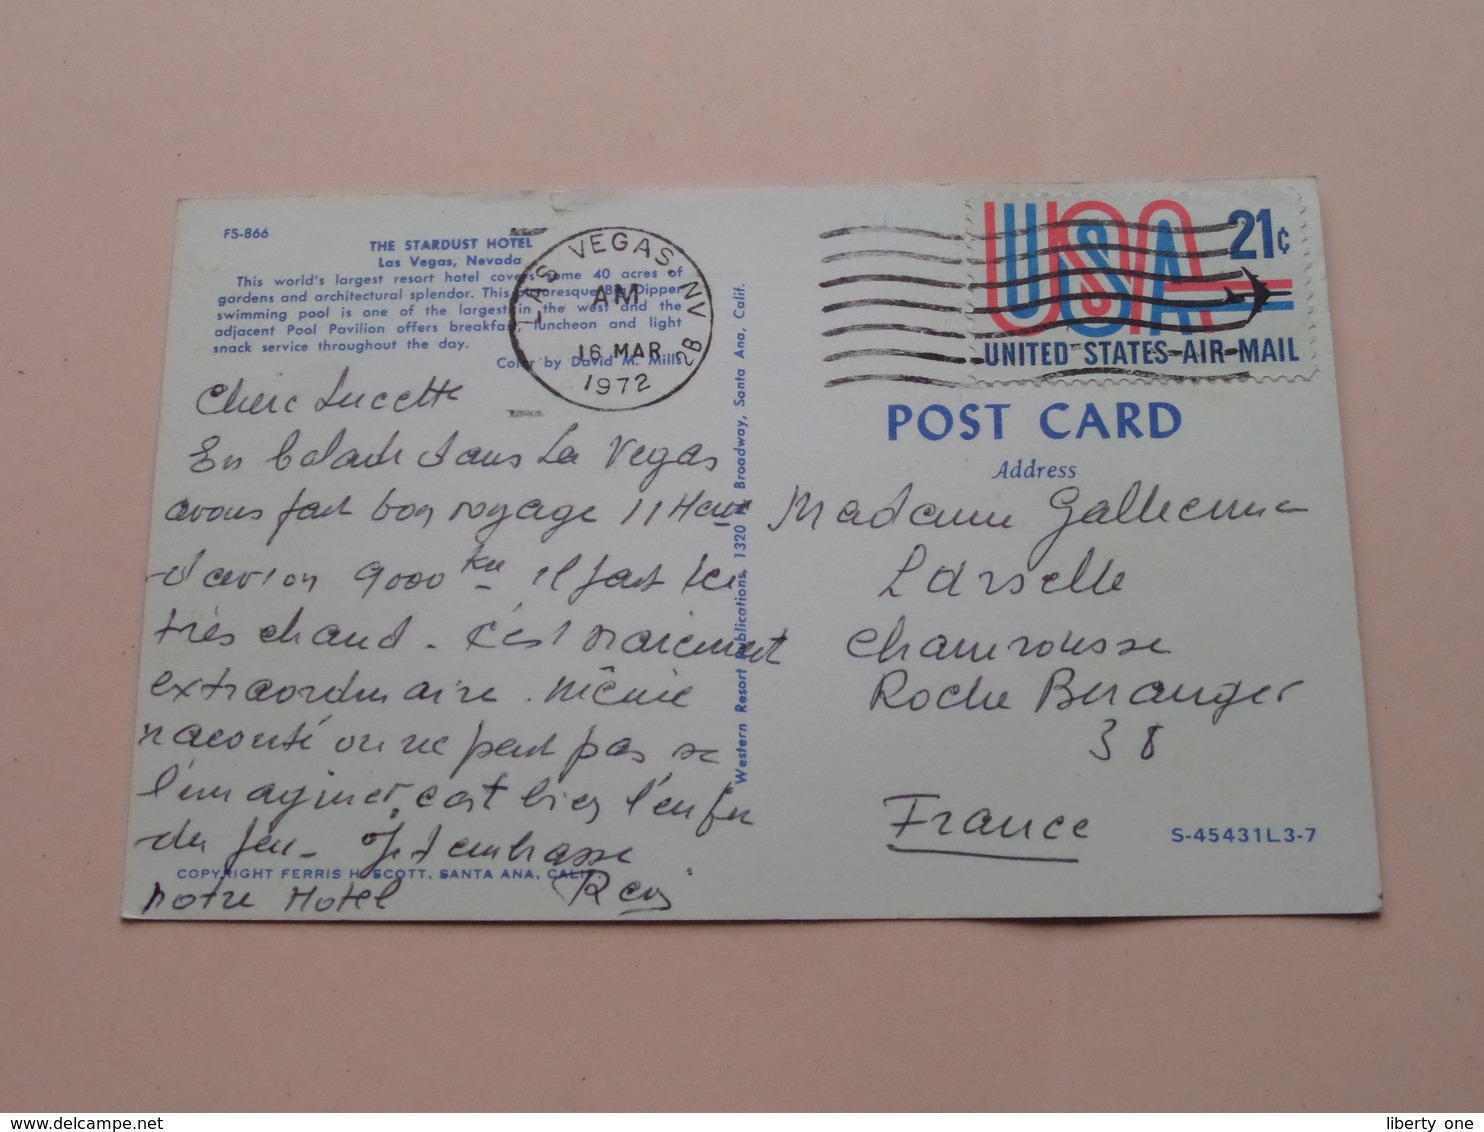 FS-866
THE STARDUST HOTEL
Las Vegas, Nevada
This world's largest resort hotel covers some 40 acres of
gardens and architectural splendor. This picturesque Big Dipper
swimming pool is one of the largest in the west and the
adjacent Pool Pavilion offers breakfast, luncheon and light
snack service throughout the day.
Color by David M. Mills
LAS VEGAS, NV
AM
16 MAR
1972
2B
Chère Lucette
En balade dans Las Vegas
avons fait bon voyage 11 Heures
d'avion 9000 km il fait ici
très chaud. c'est vraiment
extraordinaire. même
raconté on ne peut pas se
l'imaginer, c'est bien l'enfer
du jeu - Je t'embrasse
notre Hotel
COPYRIGHT FERRIS H. SCOTT, SANTA ANA, CALIF.
Western Resort Publications, 1320 N. Broadway, Santa Ana, Calif.
USA 21c
UNITED STATES AIR MAIL
POST CARD
Address
Madame
Chamrousse
Roche Beranger
38
France
S-45431L3-7
delcampe.net
liberty one